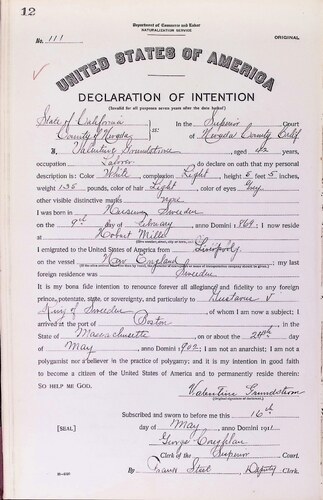 12
Department of Commerce and Labor
NATURALIZATION SERVICE
No. 111 ORIGINAL
UNITED STATES OF AMERICA
DECLARATION OF INTENTION
(Invalid for all purposes seven years after the date hereof)
State of California In the Superior Court
County of Nevada ss: of Nevada County Calif
I, Valentine Grundstrom, aged 42 years,
occupation Laborer, do declare on oath that my personal
description is: Color White, complexion Light, height 5 feet 5 inches,
weight 135 pounds, color of hair Light, color of eyes Grey
other visible distinctive marks none
I was born in Sweden
on the 9th day of February, anno Domini 1869; I now reside
at Hobart Mills
I emigrated to the United States of America from Liverpool
on the vessel New England; my last
foreign residence was Sweden
It is my bona fide intention to renounce forever all allegiance and fidelity to any foreign
prince, potentate, state, or sovereignty, and particularly to Gustavus V
King of Sweden, of whom I am now a subject; I
arrived at the port of Boston, in the
State of Massachusetts on or about the 24th day
of May, anno Domini 1902; I am not an anarchist; I am not a
polygamist nor a believer in the practice of polygamy; and it is my intention in good faith
to become a citizen of the United States of America and to permanently reside therein:
SO HELP ME GOD.
Valentine Grundstrom
(Original signature of declarant.)
Subscribed and sworn to before me this 16th
[SEAL] day of May, anno Domini 1911
George
Clerk of the Superior Court.
By Frank Steel, Deputy Clerk.